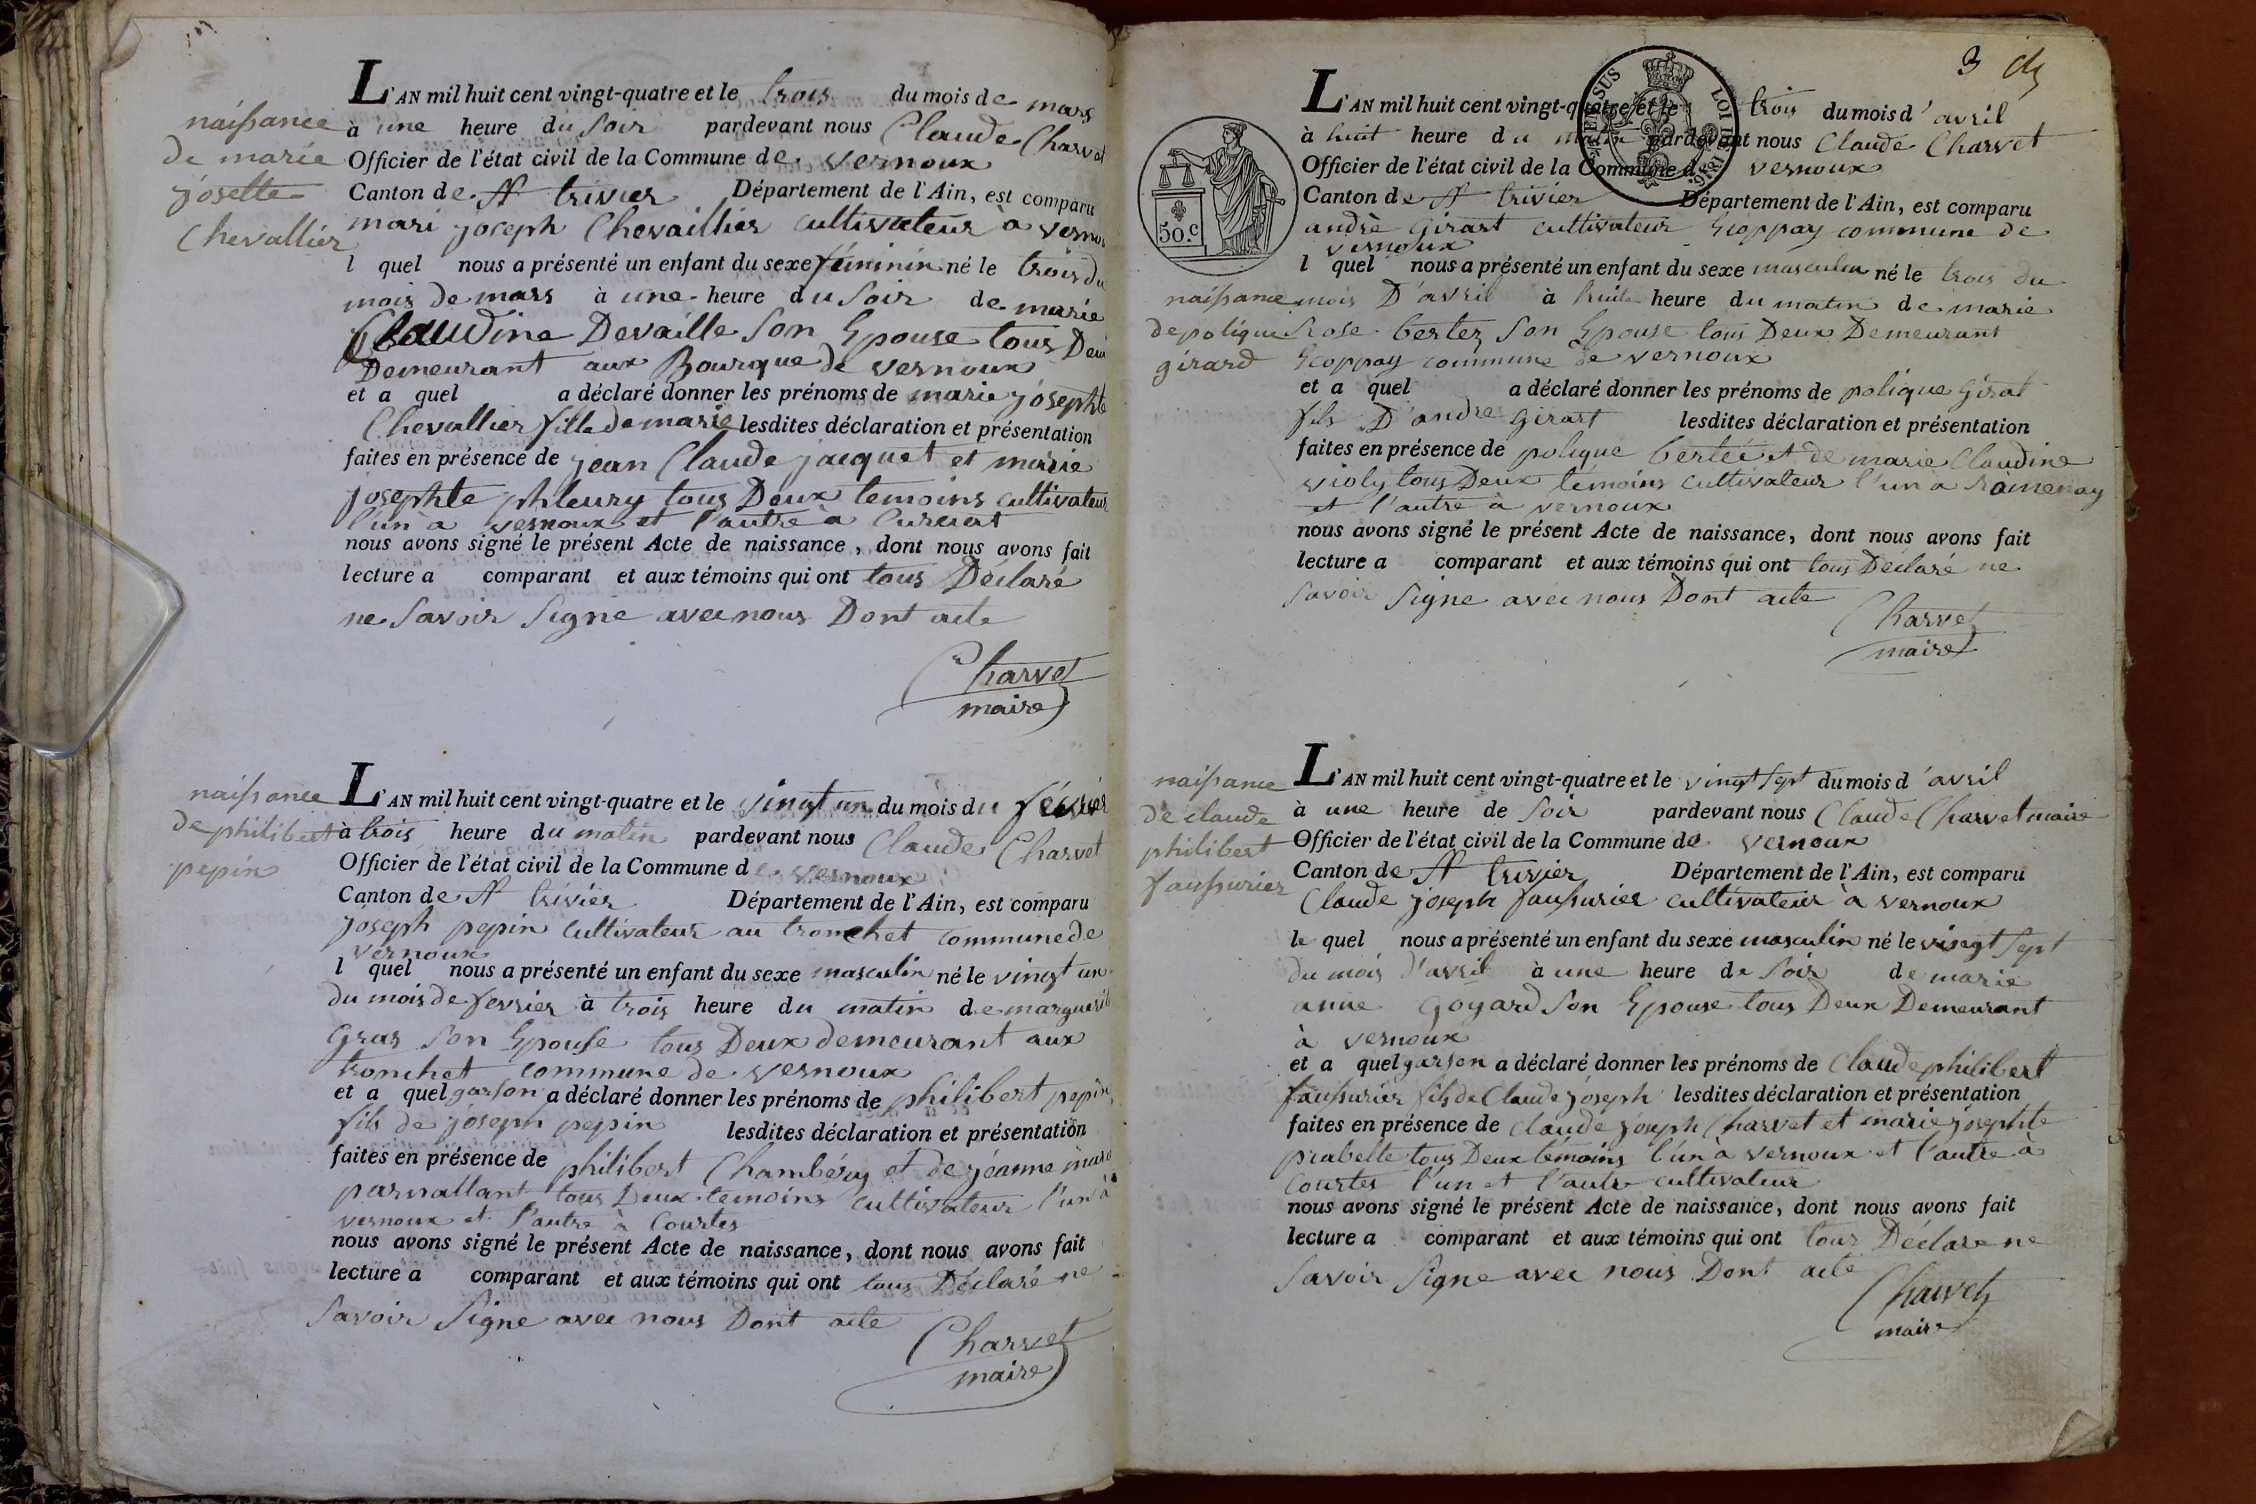 naissance
de marie
josette
Chevallier
L'AN mil huit cent vingt-quatre et le trois du mois de mars
à une heure du soir pardevant nous Claude Charvet
Officier de l'état civil de la Commune de vernoux
Canton de St trivier Département de l'Ain, est comparu
mari joseph Chevaillier cultivateur à vernou
l quel nous a présenté un enfant du sexe féminin né le trois du
mois de mars à une heure du soir de marie
Claudine Devaille son Epouse tous Deu
Demeurant aux Bourque de vernoux
et a quel a déclaré donner les prénoms de marie josephte
Chevallier fille de marie lesdites déclaration et présentation
faites en présence de jean Claude jacquet et marie
josephte phleury tous Deux temoins cultivateur
l'un a vernoux et l'autre a Curciat
nous avons signé le présent Acte de naissance, dont nous avons fait
lecture a comparant et aux témoins qui ont tous Déclaré
ne savoir signé avec nous Dont acte
Charvet
maire
naissance
de philibert
pepin
L'AN mil huit cent vingt-quatre et le vingt un du mois du février
à trois heure du matin pardevant nous Claude Charvet
Officier de l'état civil de la Commune de vernoux
Canton de St trivier Département de l'Ain, est comparu
joseph pepin cultivateur au tronchet commune de
vernoux
l quel nous a présenté un enfant du sexe masculin né le vingt un
du mois de fevrier à trois heure du matin de marguerit
gras son Epouse tous Deux demeurant aux
tronchet commune de vernoux
et a quel garson a déclaré donner les prénoms de philibert pepin
fils de joseph pepin lesdites déclaration et présentation
faites en présence de philibert Chambéry et de jéanne mari
parvallant tous Deux temoins cultivateur l'un à
vernoux et l'autre à Courtes
nous avons signé le présent Acte de naissance, dont nous avons fait
lecture a comparant et aux témoins qui ont tous Déclaré ne
savoir signe avec nous Dont acte
Charvet
maire
3
L'AN mil huit cent vingt-quatre et le trois du mois d'avril
à huit heure du matin pardevant nous Claude Charvet
Officier de l'état civil de la Commune d vernoux
Canton de St trivier Département de l'Ain, est comparu
andrè girart cultivateur Ecoppay commune de
vernoux
l quel nous a présenté un enfant du sexe masculin né le trois du
mois D'avril à huite heure du matin de marie
Rose bertez son Epouse tous Deux Demeurant
Ecoppay commune de vernoux
et a quel a déclaré donner les prénoms de polique girat
fils D'andre girart lesdites déclaration et présentation
faites en présence de polique bertéé et de marie Claudine
violy tous Deux témoins cultivateur l'un a Romenay
et l'autre à vernoux
nous avons signé le présent Acte de naissance, dont nous avons fait
lecture a comparant et aux témoins qui ont tous Déclaré ne
savoir signe avec nous Dont acte
Charvet
maire
50.c
LOI DE 1816.
naissance
de polique
girard
naissance
de claude
philibert
faussurier
L'AN mil huit cent vingt-quatre et le vingt sept du mois d'avril
à une heure de soir pardevant nous Claude Charvet maire
Officier de l'état civil de la Commune de vernoux
Canton de St trivier Département de l'Ain, est comparu
Claude joseph faussurier cultivateur à vernoux
le quel nous a présenté un enfant du sexe masculin né le vingt sept
du mois d'avril à une heure de soir de marie
anne goyard son Epouse tous Deux Demeurant
à vernoux
et a quel garson a déclaré donner les prénoms de Claude philibert
faussurier fils de Claude joseph lesdites déclaration et présentation
faites en présence de claude joseph Charvet et marie josephte
prabelle tous Deux témoins l'un à vernoux et l'autre à
Courtes l'un et l'autre cultivateur
nous avons signé le présent Acte de naissance, dont nous avons fait
lecture a comparant et aux témoins qui ont tous Déclare ne
savoir signe avec nous Dont acte
Charvet
maire